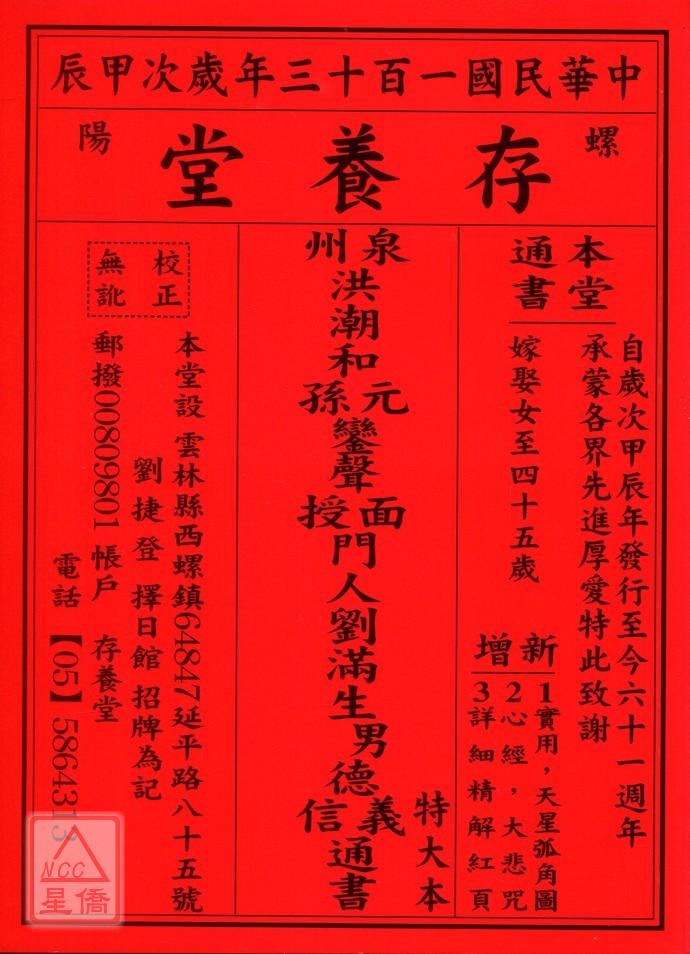 中華民國一百十三年歲次甲辰
螺陽
存養堂
本堂通書
自歲次甲辰年發行至今六十一週年
承蒙各界先進厚愛特此致謝
嫁娶女至四十五歲
新增
1實用，天星弧角圖
2心經，大悲咒
3詳細精解紅頁
泉州洪潮和元孫鑾聲面授門人劉滿生男德義信通書
特大本
校正無訛
本堂設 雲林縣西螺鎮64847延平路八十五號
劉捷登 擇日館 招牌為記
郵撥00809801 帳戶 存養堂
電話【05】5864313
NCC
星僑